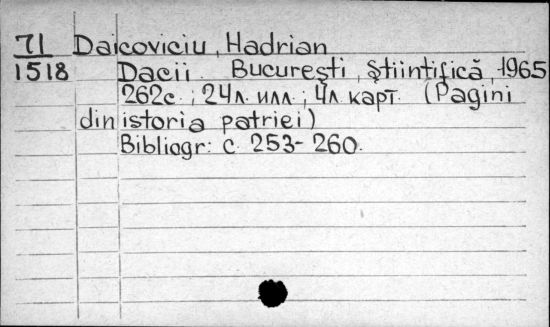 71 Daicoviciu, Hadrian
1518 Dacii. Bucureşti, Ştiintifică, 1965
262с.; 24л. илл.; 4л. карт. (Pagini
din istoria patriei)
Bibliogr: с. 253-260.